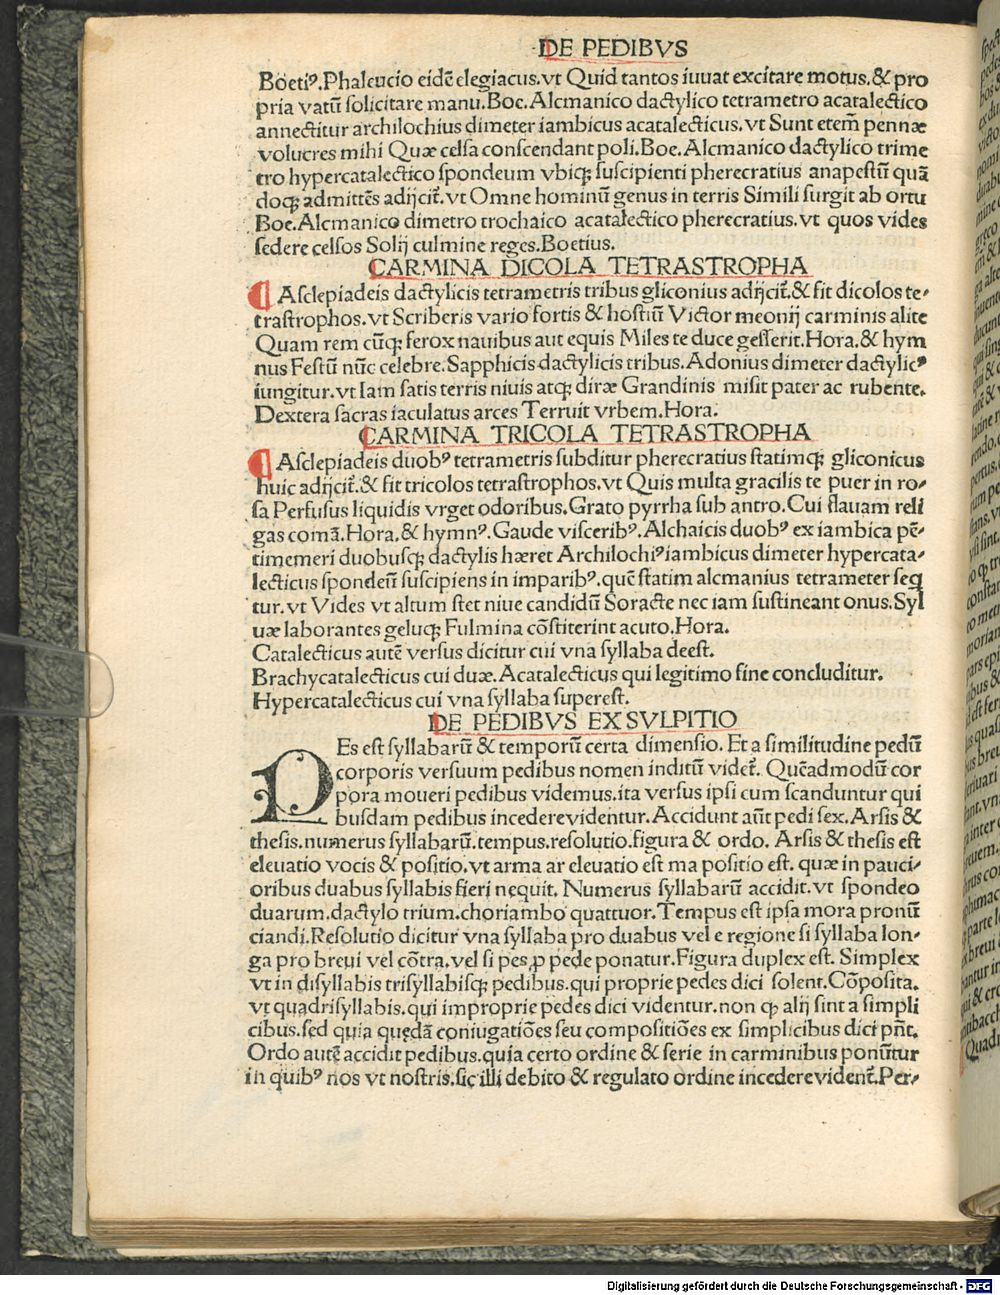 DE PEDIBVS
Boeti⁹. Phaleucio eidē elegiacus. vt Quid tantos iuuat excitare motus. & pro
pria vatū solicitare manu. Boe. Alcmanico dactylico tetrametro acatalectico
annectitur archilochius dimeter iambicus acatalecticus. vt Sunt etem̄ pennæ
volucres mihi Quæ celsa conscendant poli. Boe. Alcmanico dactylico trime
tro hypercatalectico spondeum vbiq; suscipienti pherecratius anapestū quā
doq; admittēs adijcit̄. vt Omne hominū genus in terris Simili surgit ab ortu
Boe. Alcmanico dimetro trochaico acatalectico pherecratius. vt quos vides
sedere celsos Solij culmine reges. Boetius.
CARMINA DICOLA TETRASTROPHA
¶ Asclepiadeis dactylicis tetrametris tribus gliconius adijcit̄. & fit dicolos te-
trastrophos. vt Scriberis vario fortis & hostiū Victor meonij carminis alite
Quam rem cūq; ferox nauibus aut equis Miles te duce gesserit. Hora. & hym
nus Festū nūc celebre. Sapphicis dactylicis tribus. Adonius dimeter dactylic⁹
iungitur. vt Iam satis terris niuis atq; diræ Grandinis misit pater ac rubente.
Dextera sacras iaculatus arces Terruit vrbem. Hora.
CARMINA TRICOLA TETRASTROPHA
¶ Asclepiadeis duob⁹ tetrametris subditur pherecratius statimq; gliconicus
huic adijcit̄. & fit tricolos tetrastrophos. vt Quis multa gracilis te puer in ro-
sa Perfusus liquidis vrget odoribus. Grato pyrrha sub antro. Cui flauam reli
gas comā. Hora. & hymn⁹. Gaude viscerib⁹. Alchaicis duob⁹ ex iambica pē-
timemeri duobusq; dactylis hæret Archilochi⁹ iambicus dimeter hypercata-
lecticus spondeū suscipiens in imparib⁹. quē statim alcmanius tetrameter seq
tur. vt Vides vt altum stet niue candidū Soracte nec iam sustineant onus. Syl
uæ laborantes geluq; Fulmina cōstiterint acuto. Hora.
Catalecticus autē versus dicitur cui vna syllaba deest.
Brachycatalecticus cui duæ. Acatalecticus qui legitimo fine concluditur.
Hypercatalecticus cui vna syllaba superest.
DE PEDIBVS EX SVLPITIO
PEs est syllabarū & temporū certa dimensio. Et a similitudine pedū
corporis versuum pedibus nomen inditū videt̄. Quēadmodū cor
pora moueri pedibus videmus. ita versus ipsi cum scanduntur qui
busdam pedibus incedere videntur. Accidunt aūt pedi sex. Arsis &
thesis. numerus syllabarū. tempus. resolutio. figura & ordo. Arsis & thesis est
eleuatio vocis & positio. vt arma ar eleuatio est ma positio est. quæ in pauci-
oribus duabus syllabis fieri nequit. Numerus syllabarū accidit. vt spondeo
duarum. dactylo trium. choriambo quattuor. Tempus est ipsa mora pronū
ciandi. Resolutio dicitur vna syllaba pro duabus vel e regione si syllaba lon-
ga pro breui vel cōtra. vel si pes ꝓ pede ponatur. Figura duplex est. Simplex
vt in disyllabis trisyllabisq; pedibus. qui proprie pedes dici solent. Cōposita.
vt quadrisyllabis. qui improprie pedes dici videntur. non ꝙ alij sint a simpli
cibus. sed quia quędā coniugatiōes seu compositiōes ex simplicibus dici pn̄t.
Ordo autē accidit pedibus. quia certo ordine & serie in carminibus ponūtur
in quib⁹ nos vt nostris. sic illi debito & regulato ordine incedere vident̄. Per-
Digitalisierung gefördert durch die Deutsche Forschungsgemeinschaft - DFG